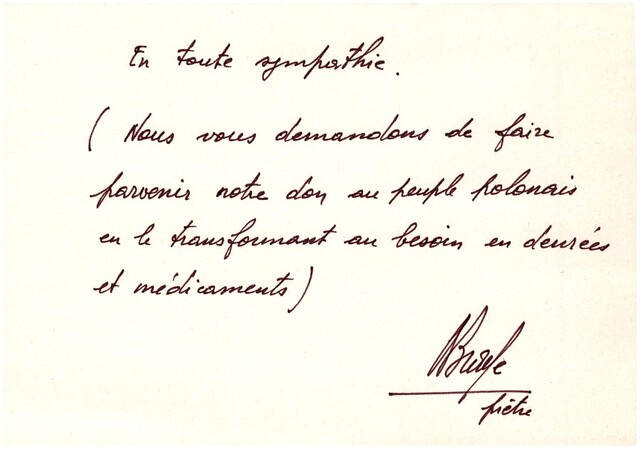 En toute sympathie.
( Nous vous demandons de faire
parvenir notre don au peuple polonais
en le transformant au besoin en denrées
et médicaments )
prêtre